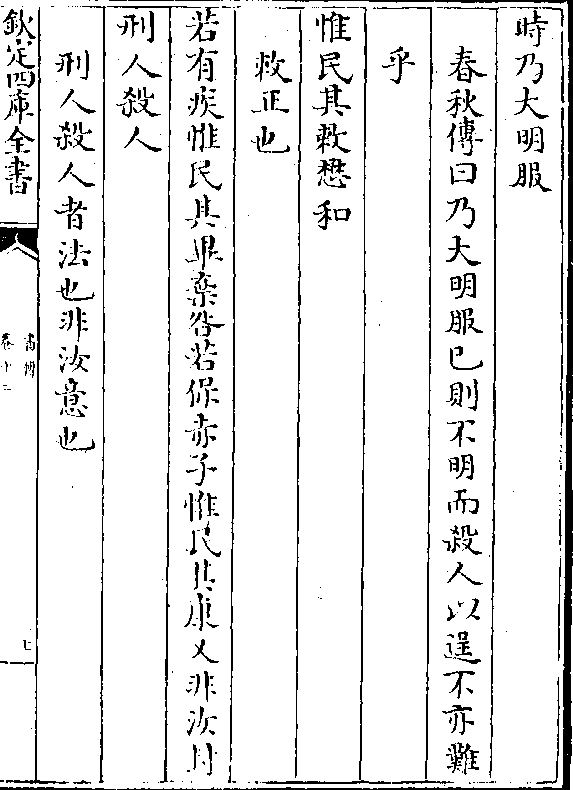 時乃大明服
春秋傳曰乃大明服已則不明而殺人以逞不亦難
乎
惟民其敕懋和
敕正也
若有疾惟民其畢棄咎若保赤子惟民其康乂非汝封
刑人殺人
刑人殺人者法也非汝意也
欽定四庫全書
書傳
卷十二
七